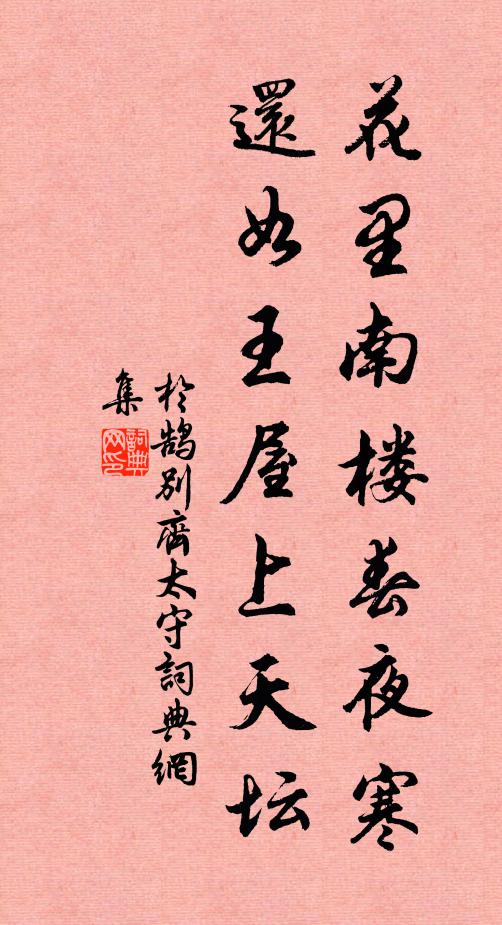 花里南楼春夜寒
還如王屋上天坛
於鹄別齊太守詞典網
集
詞典网印